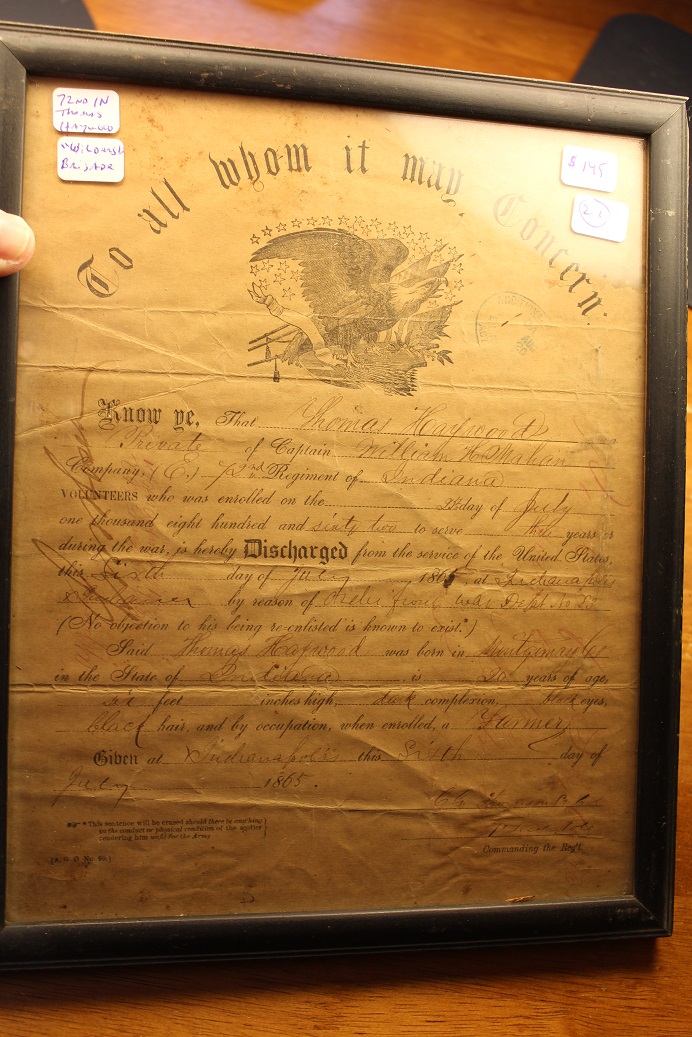 72nd IN
Thomas
Haywood
"Wilder's
Brigade
$145
To all whom it may Concern:
Know ye, That Thomas Haywood
Private of Captain William H.
Company, (E.) 72nd Regiment of Indiana
VOLUNTEERS who was enrolled on the day of July
one thousand eight hundred and sixty two to serve three years or
during the war, is hereby Discharged from the service of the United States,
this Sixth day of July, 1865, at Indianapolis
Indiana by reason of Order from War Dept No
(No objection to his being re-enlisted is known to exist.*)
Said Thomas Haywood was born in
in the State of Indiana is years of age,
six feet inches high, dark complexion, black eyes,
black hair, and by occupation, when enrolled, a Farmer
Given at Indianapolis this Sixth day of
July 1865.
* This sentence will be erased should there be anything
in the conduct or physical condition of the soldier
rendering him unfit for the Army.
Commanding the Reg't.
[A. G. O. No. 99.]